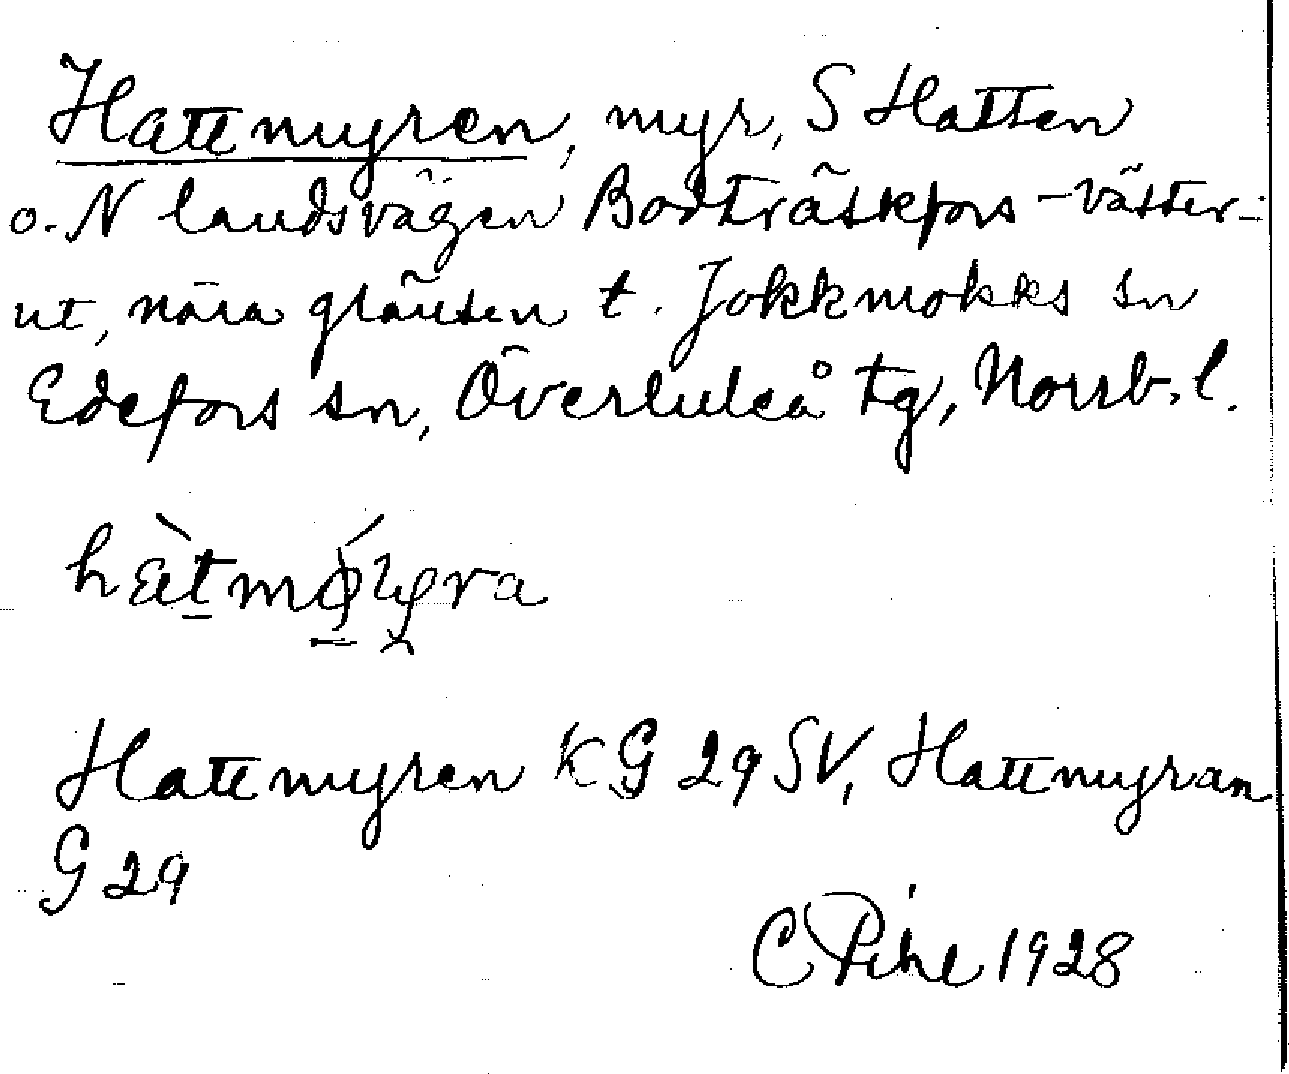 Hattmyren, myr, S Hatten
o. N landsvägen Bodträskfors - Väster-
ut, nära gränsen t. Jokkmokks sn
Edefors sn, Överluleå tg, Norrb. l.
Hattmyren KG 29 SV, Hattmyran
G 29
C Pihl 1928